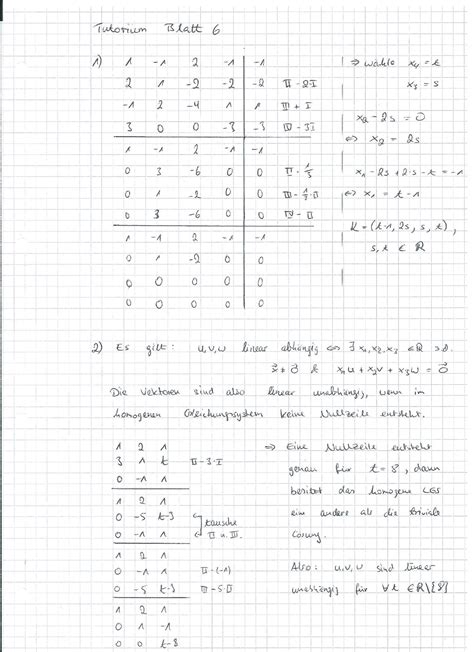 Tutorium Blatt 6
1) 1 -1 2 -1 | -1 | ⇒ wähle x₄ = t
2 1 -2 -2 | -2 II - 2·I | x₃ = s
-1 2 -4 1 | 1 III + I
3 0 0 -3 | -3 IV - 3I | x₂ - 2s = 0
1 -1 2 -1 | -1 ⇔ x₂ = 2s
0 3 -6 0 | 0 II · 1/3 | x₁ - 2s + 2·s - t = -1
0 1 -2 0 | 0 III - 1/3·II | ⇔ x₁ = t-1
0 3 -6 0 | 0 IV - II | K = (t-1, 2s, s, t),
1 -1 2 -1 | -1 s, t ∈ ℝ
0 1 -2 0 | 0
0 0 0 0 | 0
0 0 0 0 | 0
2) Es gilt: u,v,w linear abhängig ⇔ ∃ x₁,x₂,x₃ ∈ ℝ s.d.
x⃗ ≠ 0⃗ & x₁u + x₂v + x₃w = 0⃗
Die Vektoren sind also linear unabhängig, wenn im
homogenen Gleichungsystem keine Nullzeile entsteht.
1 2 1 ⇒ Eine Nullzeile entsteht
3 1 t II - 3·I genau für t = 8, dann
0 -1 1 besitzt das homogene LGS
1 2 1 eine andere als die triviale
0 -5 t-3 tausche Lösung.
0 -1 1 II u. III.
1 2 1 Also: u,v,w sind linear
0 -1 1 II·(-1) unabhängig für ∀ t ∈ ℝ\{8}
0 -5 t-3 III - 5·II
1 2 1
0 1 -1
0 0 t-8